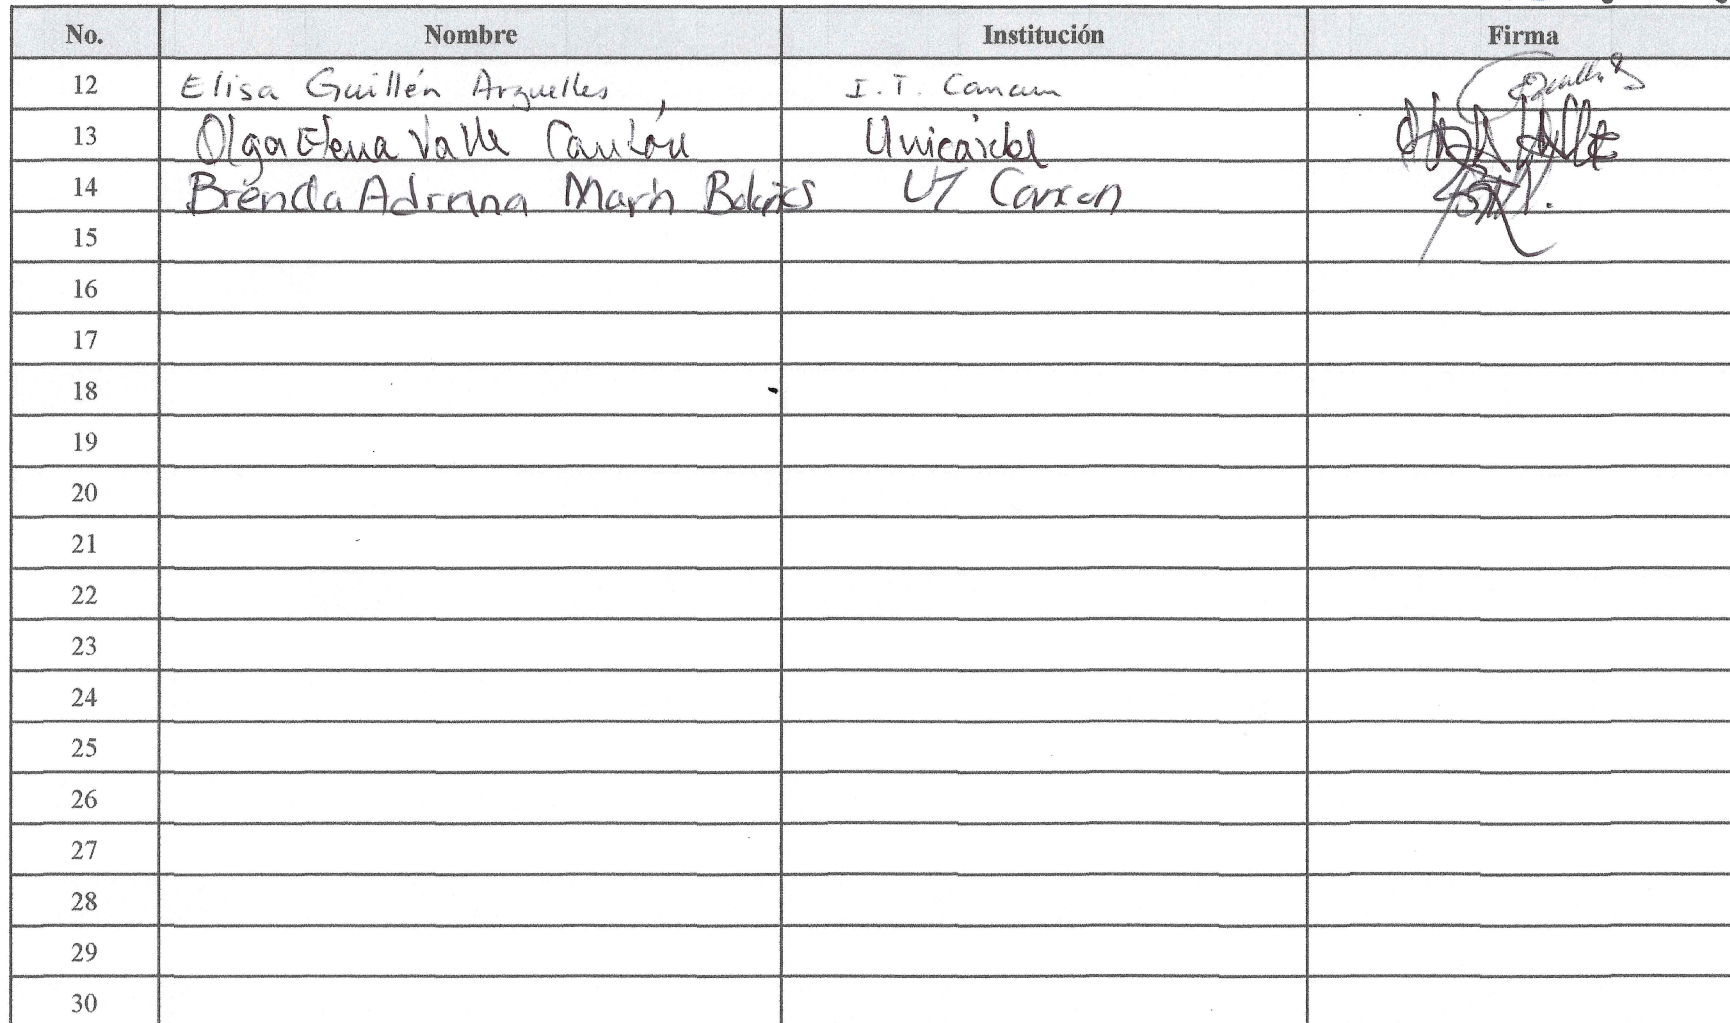 No. Nombre Institución Firma
12 Elisa Guillén Arguelles I.T. Cancun
13 Olga Elena Valle Unicaribe
14 Brenda Adriana Marín UT Cancun
15
16
17
18
19
20
21
22
23
24
25
26
27
28
29
30